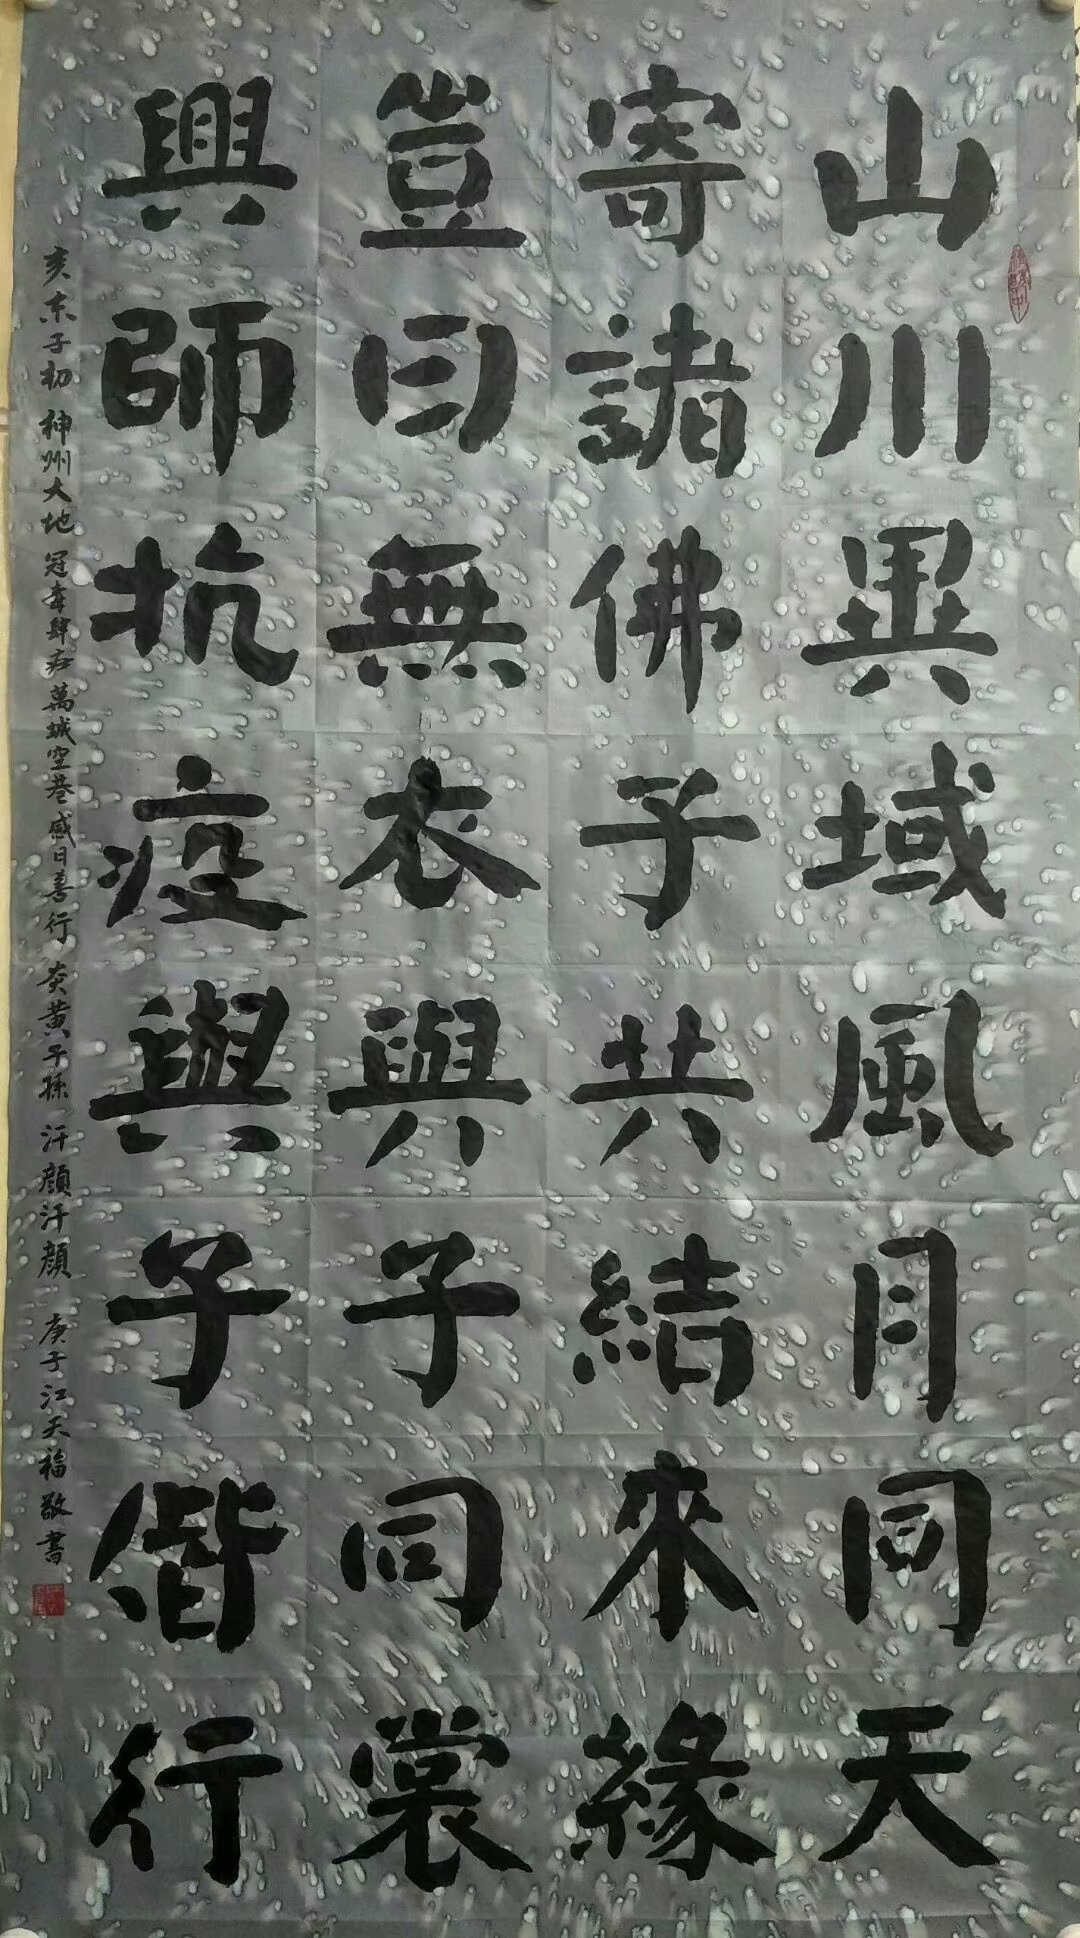 山川異域風月同天
寄諸佛子共結來緣
豈曰無衣與子同裳
興師抗疫與子偕行
亥末子初 神州大地 冠毒肆虐 萬城空巷 感日善行 炎黃子孫 汗顏汗顏 庚子江天福敬書